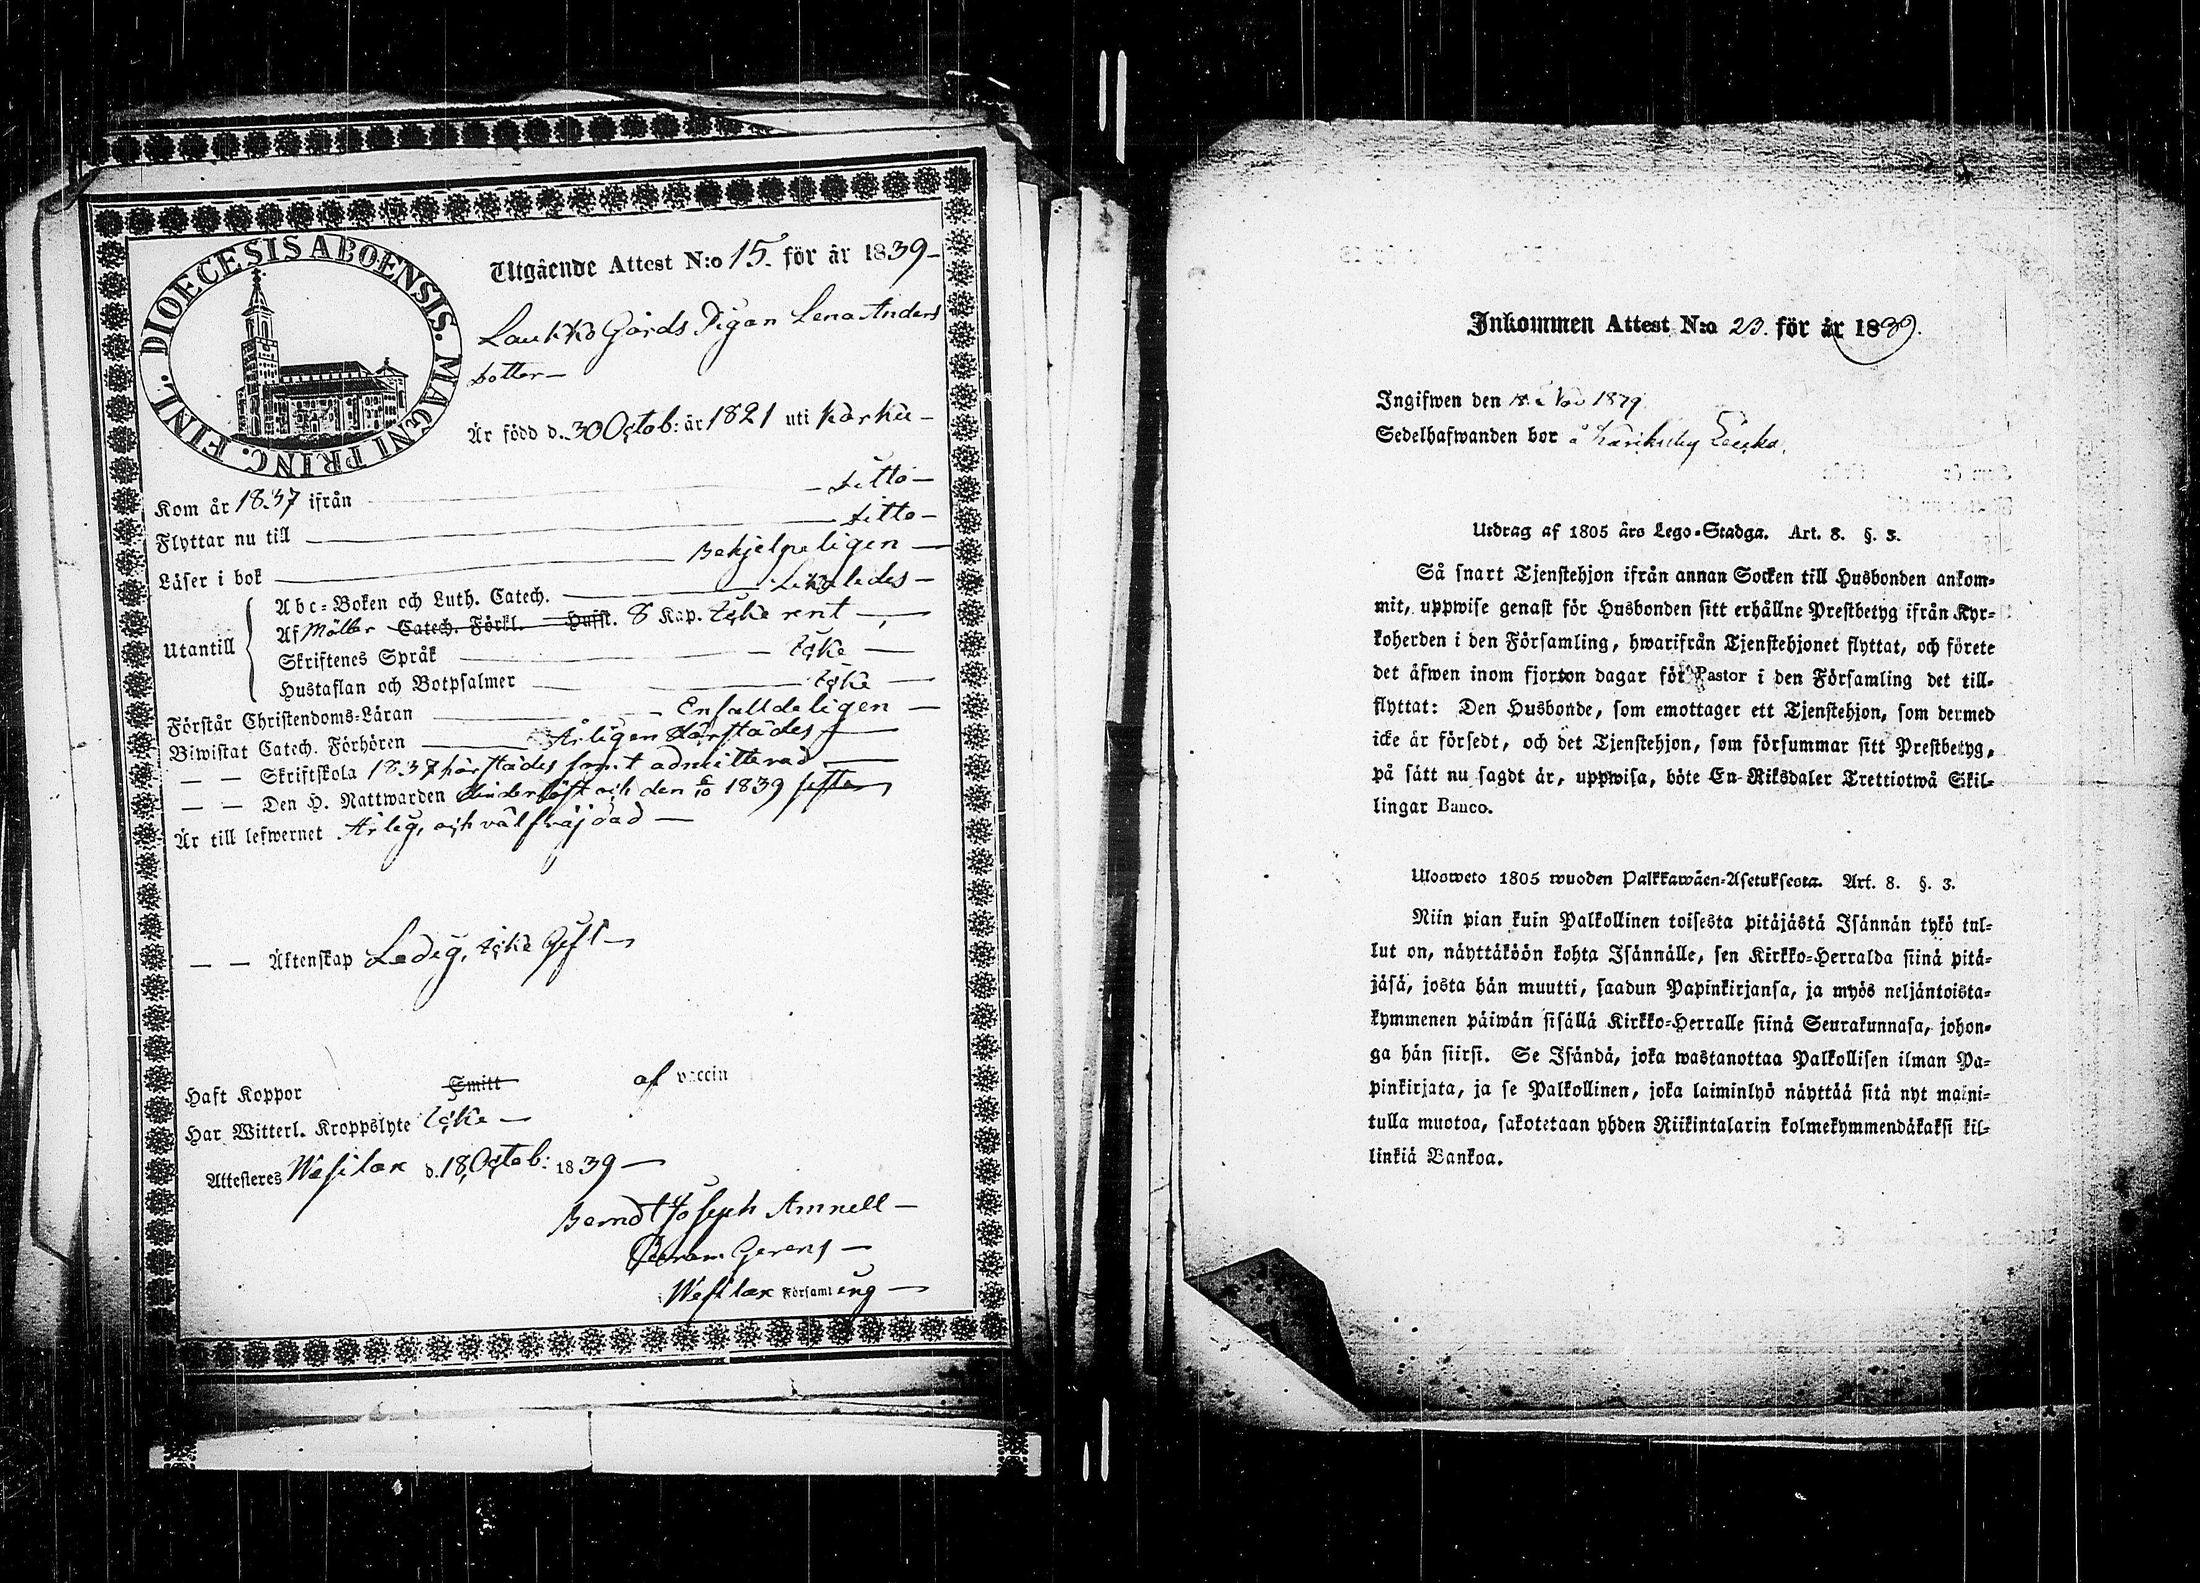 DIOECESIS ABOENSIS. MAGNI PRINC. FINL.
Utgående Attest N:o 15. för år 1839
Laukko Gårds Pigan Lena Anders
dotter
Är född d. 30 Octob: år 1821 uti Karku
Kom år 1837 ifrån ditto
Flyttar nu till ditto
Läser i bok Behjelpeligen
Utantill
Abc-Boken och Luth. Catech. Likaledes
Af Möller Catech. Förkl. Hufst. 8 Kap. icke rent
Skriftenes Språk icke
Hustaflan och Botpsalmer icke
Förstår Christendoms-Läran Enfalldeligen
Biwistat Catech. Förhören Årligen härstädes
— — Skriftskola 1837 härstädes samt admitterad
— — Den H. Nattwarden och den 6/10 1839
Är till lefwernet Ärlig, och välfräjdad
— — Äktenskap Ledig, icke Gift
Haft Koppor Smitt af vaccin
Har Witterl. Kroppslyte icke
Attesteres Wesilax d. 18 Octob: 1839
Berndt Joseph Amnell
Gerens
i Wesilax Församling
Inkommen Attest N:o 23. för år 1839.
Ingifwen den 18 Nov 18
Sedelhafwanden bor å
Utdrag af 1805 års Lego-Stadga. Art. 8. §. 3.
Så snart Tjenstehjon ifrån annan Socken till Husbonden ankom-
mit, uppwise genast för Husbonden sitt erhållne Prestbetyg ifrån Kyr-
koherden i den Församling, hwarifrån Tjenstehjonet flyttat, och förete
det äfwen inom fjorton dagar för Pastor i den Församling det till-
flyttat: Den Husbonde, som emottager ett Tjenstehjon, som dermed
icke är försedt, och det Tjenstehjon, som försummar sitt Prestbetyg,
på sätt nu sagdt är, uppwisa, böte En Riksdaler Trettiotwå Skil-
lingar Banco.
Ulosweto 1805 wuoden Palkkawäen-Asetuksesta. Art. 8. §. 3.
Niin pian kuin Palkollinen toisesta pitäjästä Isännän tykö tul-
lut on, näyttäköön kohta Isännälle, sen Kirkko-Herralda siinä pitä-
jäsä, josta hän muutti, saadun Papinkirjansa, ja myös neljäntoista-
kymmenen päiwän sisällä Kirkko-Herralle siinä Seurakunnasa, johon-
ga hän siirsi. Se Isändä, joka wastanottaa Palkollisen ilman Pa-
pinkirjata, ja se Palkollinen, joka laiminlyö näyttää sitä nyt maini-
tulla muotoa, sakotetaan yhden Riikintalarin kolmekymmendäkaksi kil-
linkiä Bankoa.